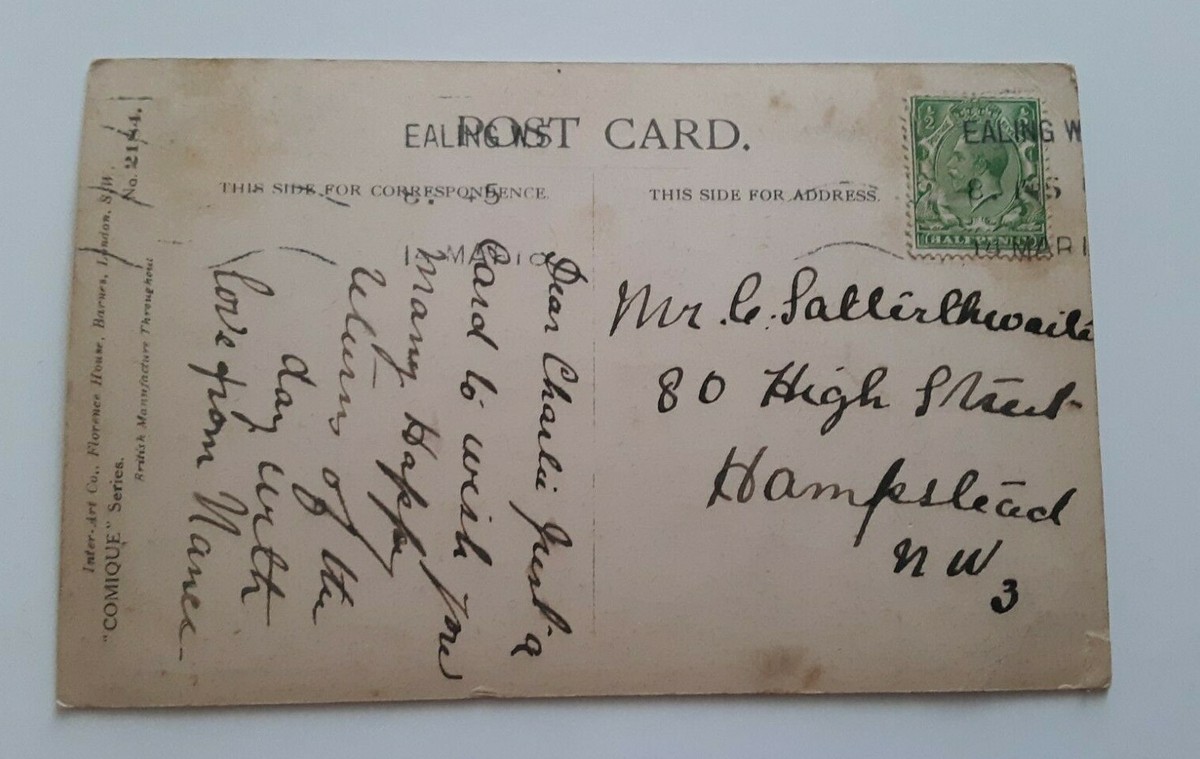 POST CARD.
EALING W5
EALING W
THIS SIDE FOR CORRESPONDENCE.
THIS SIDE FOR ADDRESS.
8. 45
MAR
14 MAR 1
½ ½
HALFPENNY
Dear Charlie Just a
Card to wish you
Many Happy
Returns of the
day with
love from Nance
Mr. C. Satterthwaite
80 High Street
Hampstead
NW
3
Inter-Art Co., Florence House, Barnes, London, S.W.
"COMIQUE" Series.
No. 2144.
British Manufacture Throughout